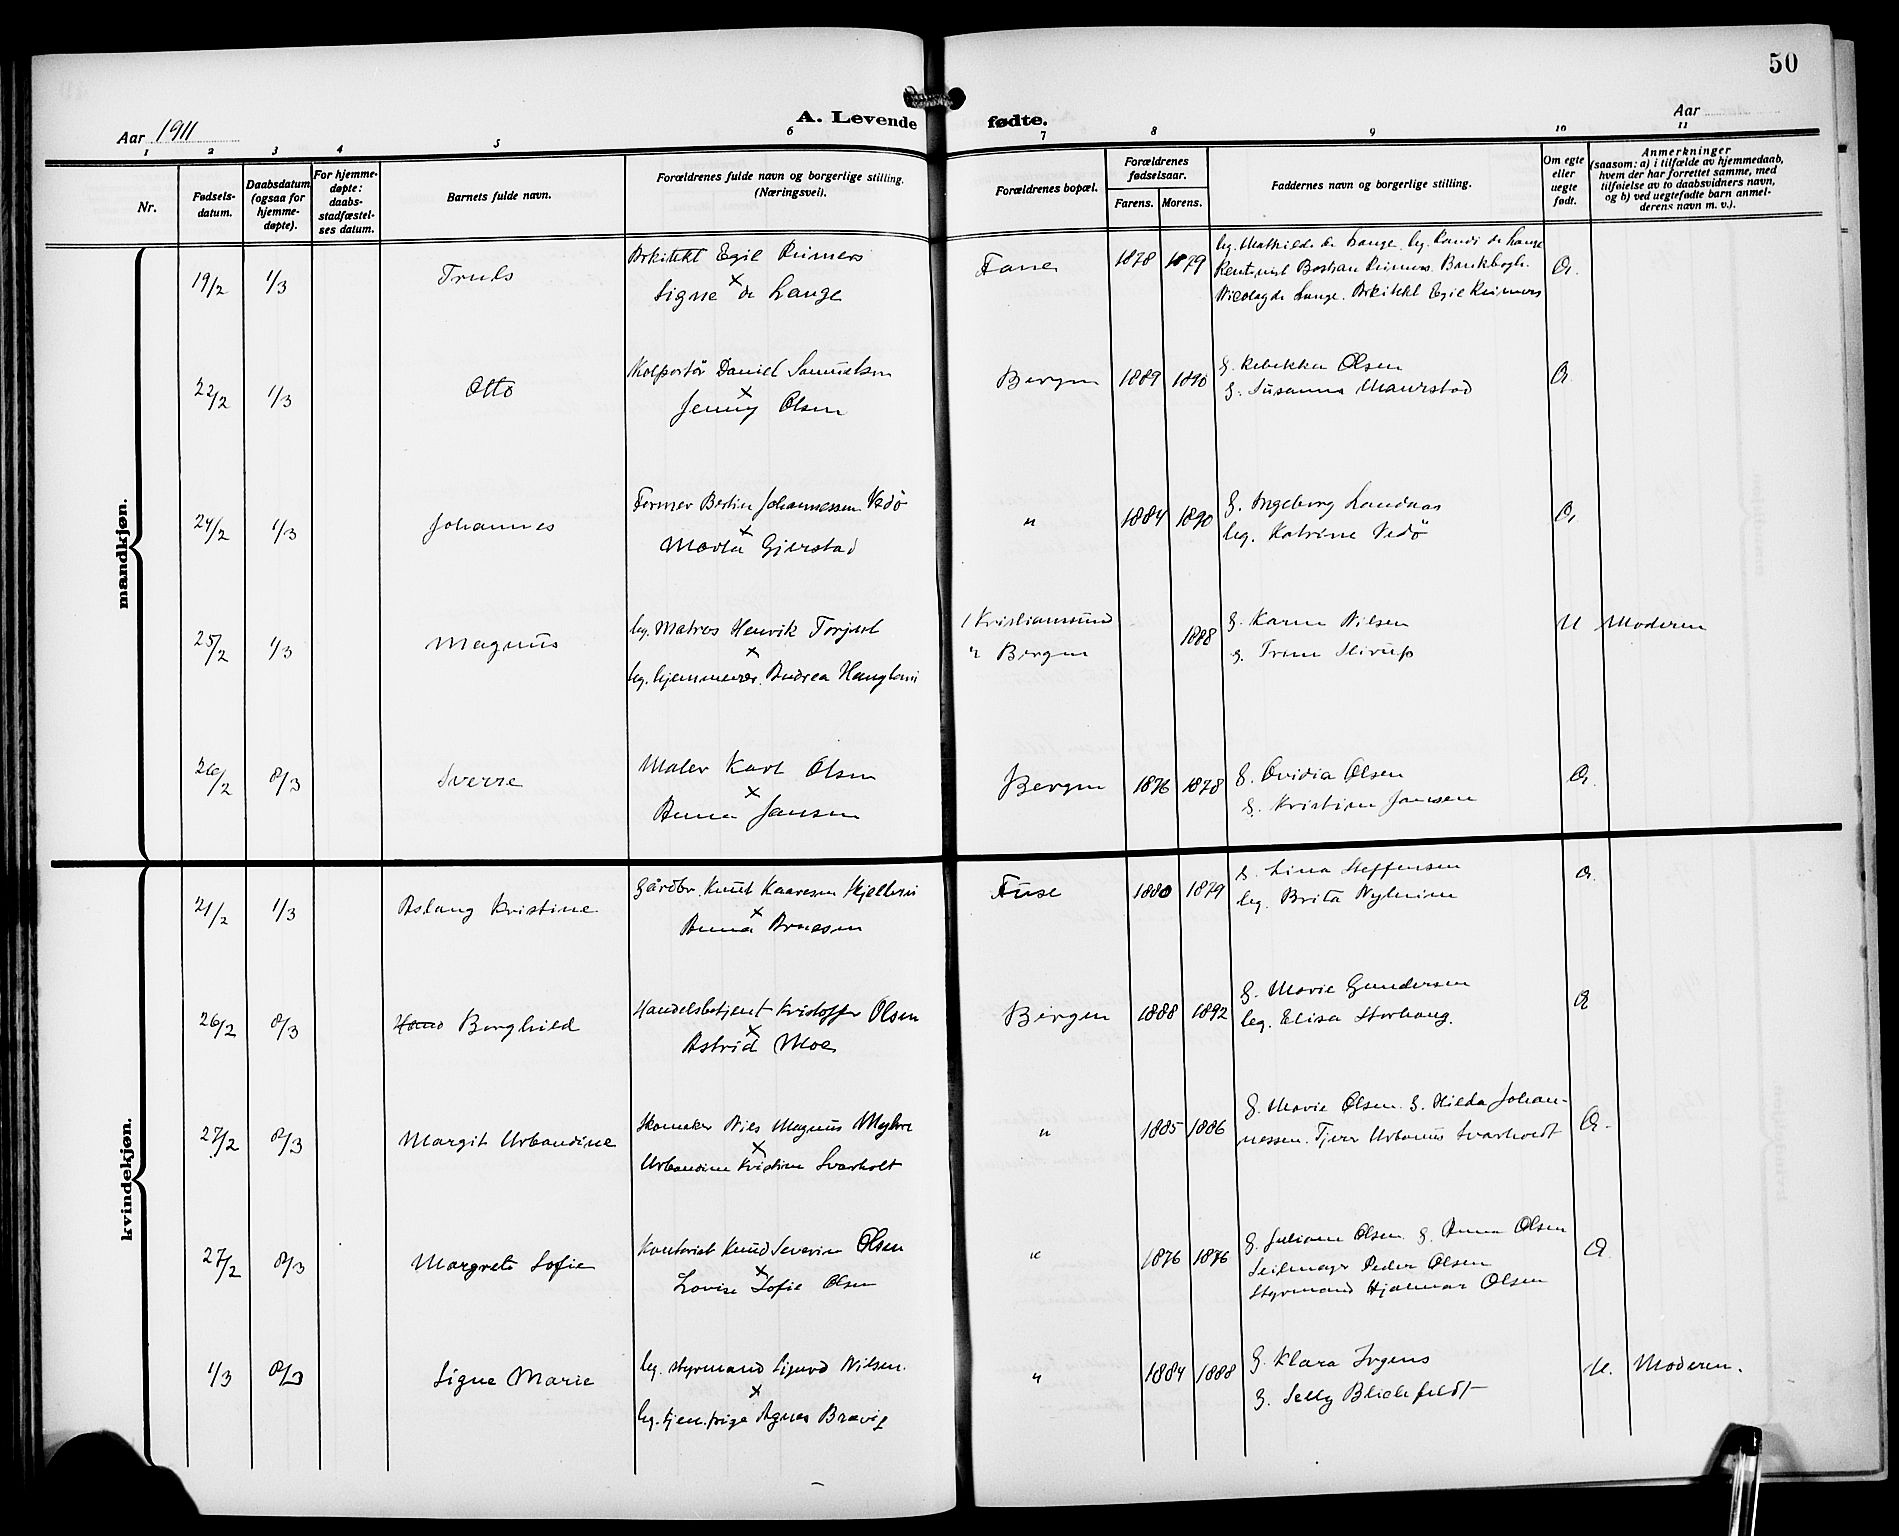 50
Aar 1911
A. Levende fødte.
Aar
1 2 3 4 5 6 7 8 9 10 11
Nr.
Fødsels-
datum.
Daabsdatum
(ogsaa for
hjemme-
døpte).
For hjemme-
døpte:
daabs-
stadfæstel-
ses datum.
Barnets fulde navn.
Forældrenes fulde navn og borgerlige stilling.
(Næringsvei).
Forældrenes bopæl.
Forældrenes
fødselsaar.
Farens. Morens.
Faddernes navn og borgerlige stilling.
Om egte
eller
uegte
født.
Anmerkninger
(saasom: a) i tilfælde av hjemmedaab,
hvem der har forrettet samme, med
tilføielse av to daabsvidners navn,
og b) ved uegtefødte barn anmel-
derens navn m. v.).
mandkjøn.
19/2 1/3 Truls
Arkitekt Egil Reimers
x
Signe de Lange
Fane 1878 1879
Ug. Mathilde de Lange. Ug. Randi de Lange
Rentenist Bastian Reimers. Bankbogh.
Nicolay de Lange. Arkitekt Egil Reimers
22/2 1/3 Otto
Kolportör Daniel Samuelsen
x
Jenny Olsen
Bergen 1889 1890
G. Rebekka Olsen
G. Susanna Maurstad
24/2 1/3 Johannes
Former Bertin Johannessen Vedö
x
Marta Gjerstad
" 1884 1890
G. Ingeborg Landaas
Ug. Katrine Vedö
25/2 1/3 Magnus
Ug. Matros Henrik
x
Ug. hjemmevær. Andrea
Kristiansund
" Bergen
1888
G. Karen Nilsen
G. Trine
U Moderen
26/2 8/3 Sverre
Maler Karl Olsen
x
Anna Jansen
Bergen 1876 1878
G. Ovidia Olsen
G. Kristine Jansen
kvindekjøn.
21/2 1/3 Aslaug Kristine
Gårdbr. Knut Kaaresen
x
Anna Arnesen
Fuse 1880 1879
G. Lina Steffensen
Ug. Brita
26/2 8/3 Borghild
Handelsbetjent Kristoffer Olsen
x
Astrid Moe
Bergen 1888 1892
G. Marie Gundersen
Ug. Elisa Storhaug.
27/2 8/3 Margit Urbandine
Skomaker Nils Magnus Myhre
x
Urbandine Kristine Svarholt
" 1885 1886
G. Marie Olsen. G. Hilda Johan-
nessen. Urbanus Svarholdt
27/2 8/3 Margrete Sofie
Kontorist Knud Severin Olsen
x
Lovise Sofie Olsen
" 1876 1876
G. Juliane Olsen. G. Anna Olsen
Seilmager Peder Olsen
Styrmand Hjalmar Olsen
1/3 8/3 Signe Marie
Ug. styrmand Sigurd Nilsen.
x
Ug. tjen.pige Agnes Bravig
" 1884 1888
G. Klara Irgens
G. Selly Blichfeldt
U. Moderen.